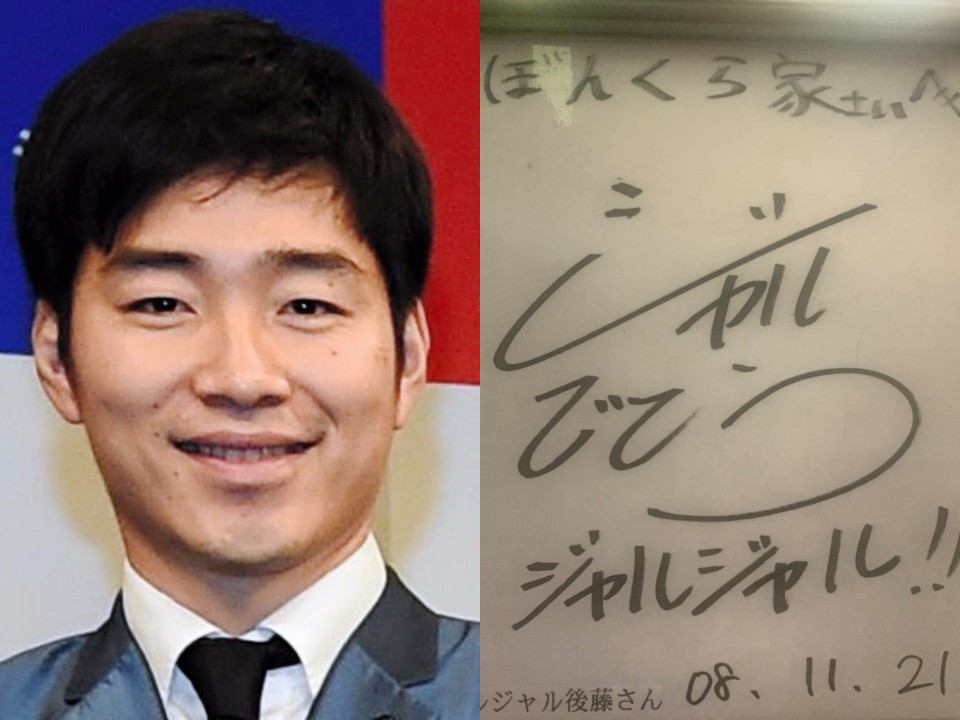 ぼんくら家さんへ
ジャル
ごとう
ジャルジャル!!
08.11.21
ジャル後藤さん